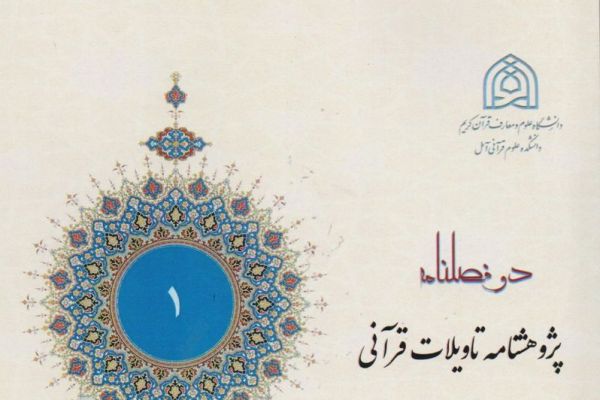 دانشگاه علوم و معارف قرآن کریم
دانشکده علوم قرآنی آمل
دو فصلنامه
پژوهشنامه تاویلات قرآنی
۱